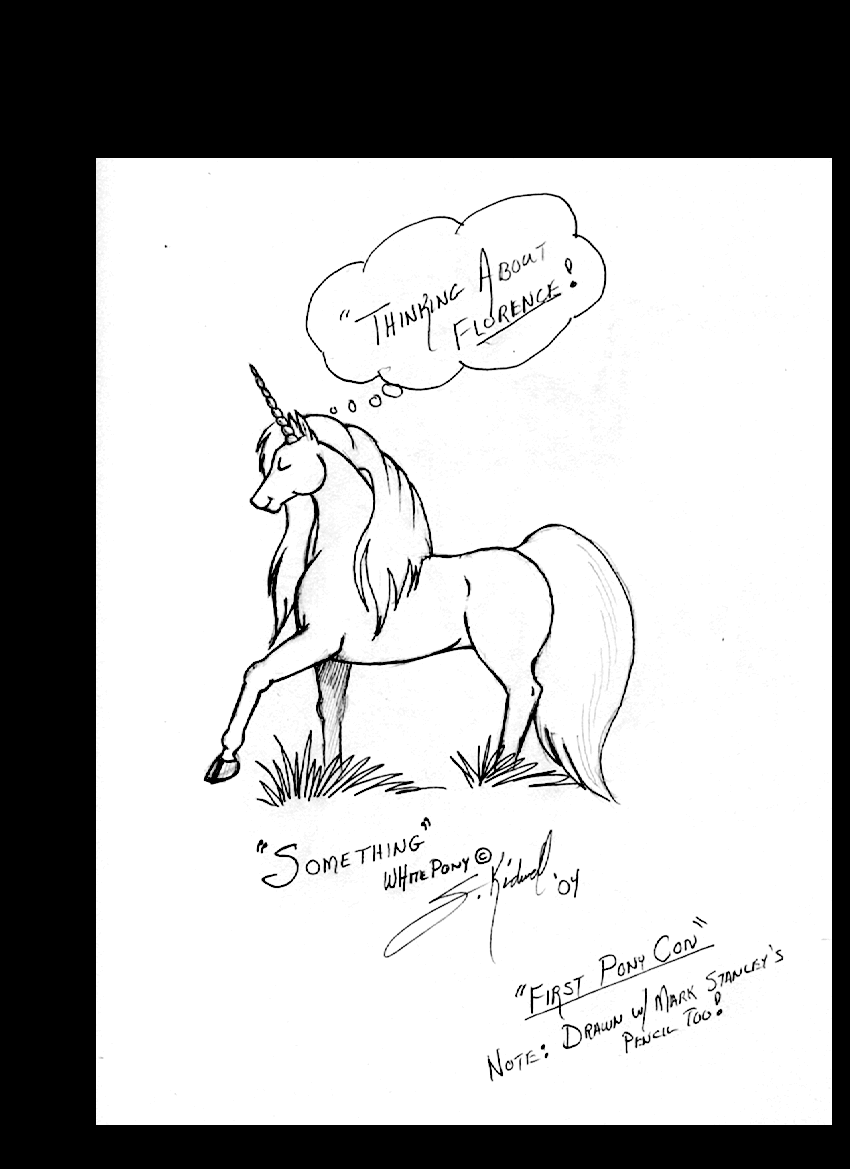 "THINKING ABOUT
FLORENCE!
"SOMETHING"
WHITE PONY ©
S. Kidwell '04
"FIRST PONY CON"
NOTE: DRAWN w/ MARK STANLEY'S
PENCIL TOO!